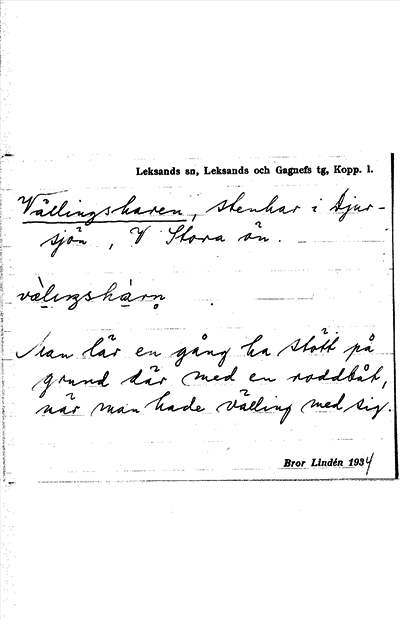 Leksands sn, Leksands och Gagnefs tg, Kopp. l.
Vällingskaren, stenkar i Djur-
sjön, V Stora ön.
Man lär en gång ha stött på
grund där med en roddbåt,
när man hade välling med sig.
Bror Lindén 1934